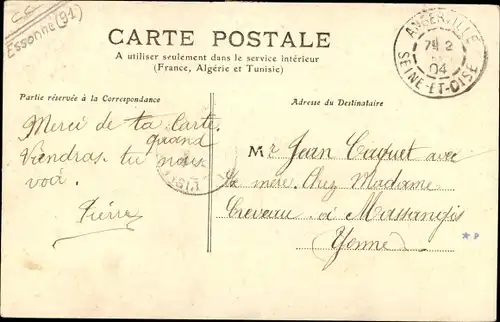 CS
Essonne (91)
CARTE POSTALE
A utiliser seulement dans le service intérieur
(France, Algérie et Tunisie)
ANGERVILLE
7E 2
04
SEINE-ET-OISE
Partie réservée à la Correspondance
Adresse du Destinataire
Merci de ta Carte.
quand
Viendras tu nous
voir.
Pierre
Mr Jean Caquet avec
Sa mère. Chez Madame
Creveau. à Massangis
Yonne